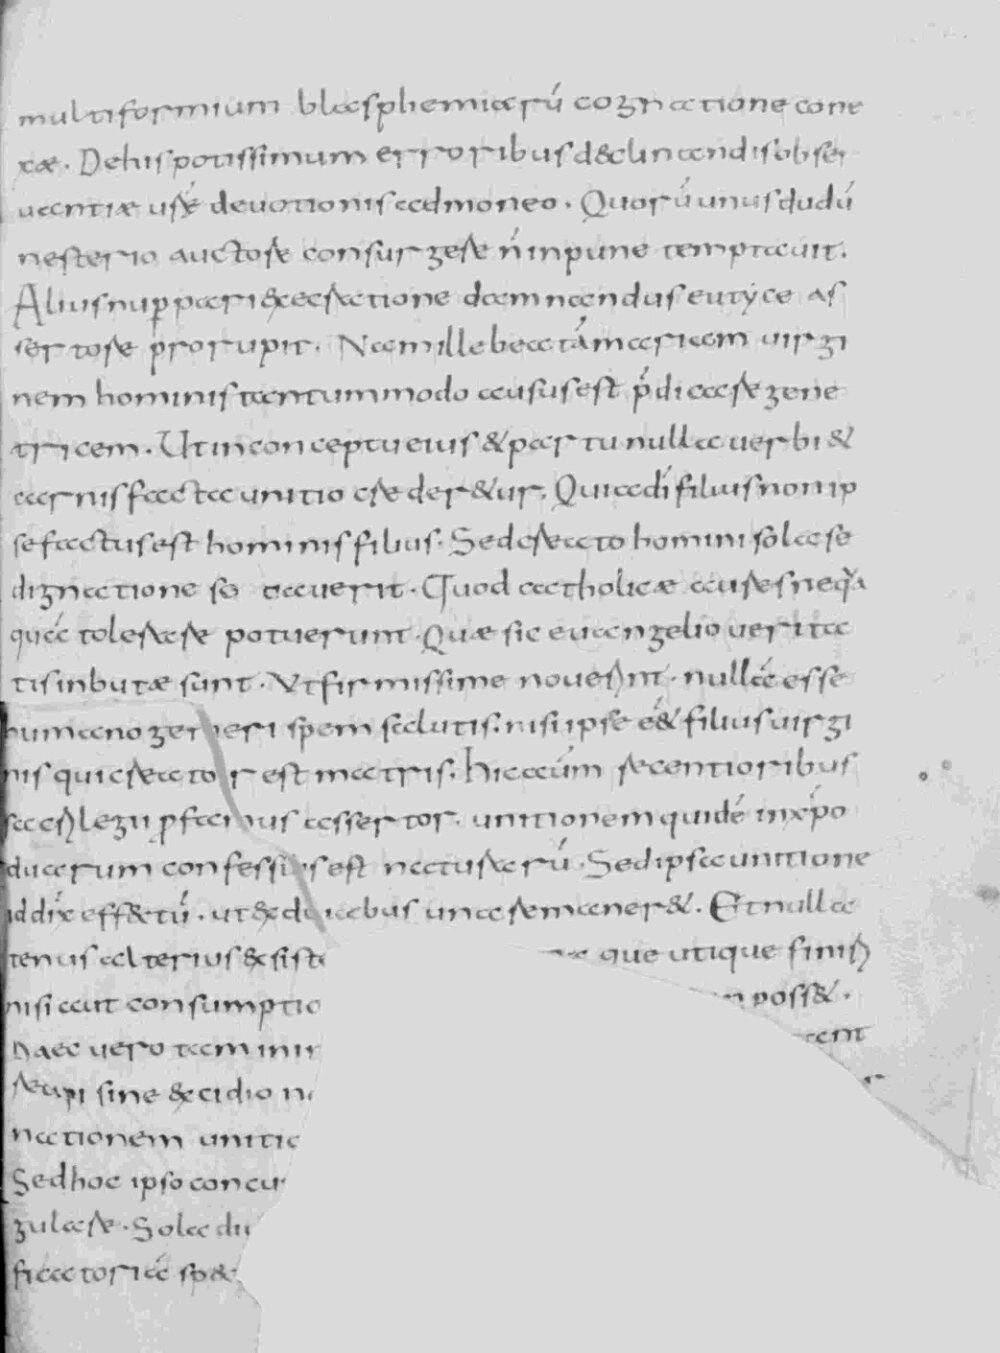 multiformium blasphemiarū cognatione cone
xae. De his potissimum erroribus declinandis obser
uantiae urae deuotionis admoneo. Quorū unus dudū
nesterio auctore consurgere ń inpune temptauit.
Alius nup pari execratione damnandus eutyce as
sertore prorupit. Nam ille beatā mariam uirgi
nem hominis tantummodo ausus est p̄dicare gene
tricem. Ut in conceptu eius & partu nulla uerbi &
carnis facta unitio crederetur. Quia dī filius non ip
se factus est hominis filius. Sed creato homini sola se
dignatione so ciauerit. Quod catholicae aures nequa
quā tolerare potuerunt. Quae sic euangelio uerita
tis inbutae sunt. Ut firmissime nouerint. nullā esse
humano generi spem salutis. nisi ipse e& filius uirgi
nis qui creator est matris. Hic aūm recentiorib us
sacrilegii pfanus assertor. unitionem quidē in xp̄o
duarum confessus est naturarū. Sed ipsa unitione
id dix̄ eff&tū. ut ex duabus una remaner&. Et nulla
tenus alterius &siste que utique finiri
nisi aut consumptio poss&.
Haec uero tam inir
reapi sine &cidio
nationem unitio
Sed hoc ipso concu
gulare. Sola
ficatoriā sp&